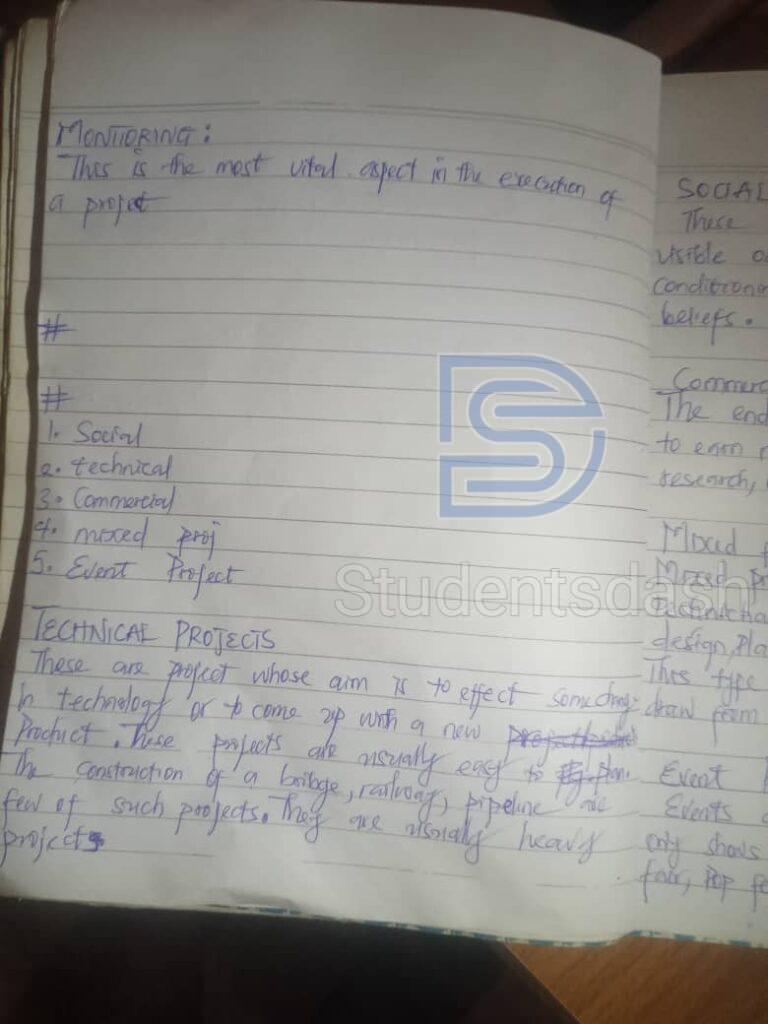 MONITORING:
This is the most vital aspect in the execution of
a project
#
#
1. Social
2. technical
3. Commercial
4. mixed proj
5. Event Project
TECHNICAL PROJECTS
These are project whose aim is to effect some change
in technology or to come up with a new
Product. These projects are usually easy to plan.
The construction of a bridge, railway, pipeline are
few of such projects. They are usually heavy
projects
SOCIAL
These
visible
conditiona
beliefs.
Commerc
The end
to earn
research,
Mixed
Mixed pr
design, Pla
This type
draw from
Event
Events
only shows
fair, Pop fe
Studentsdash